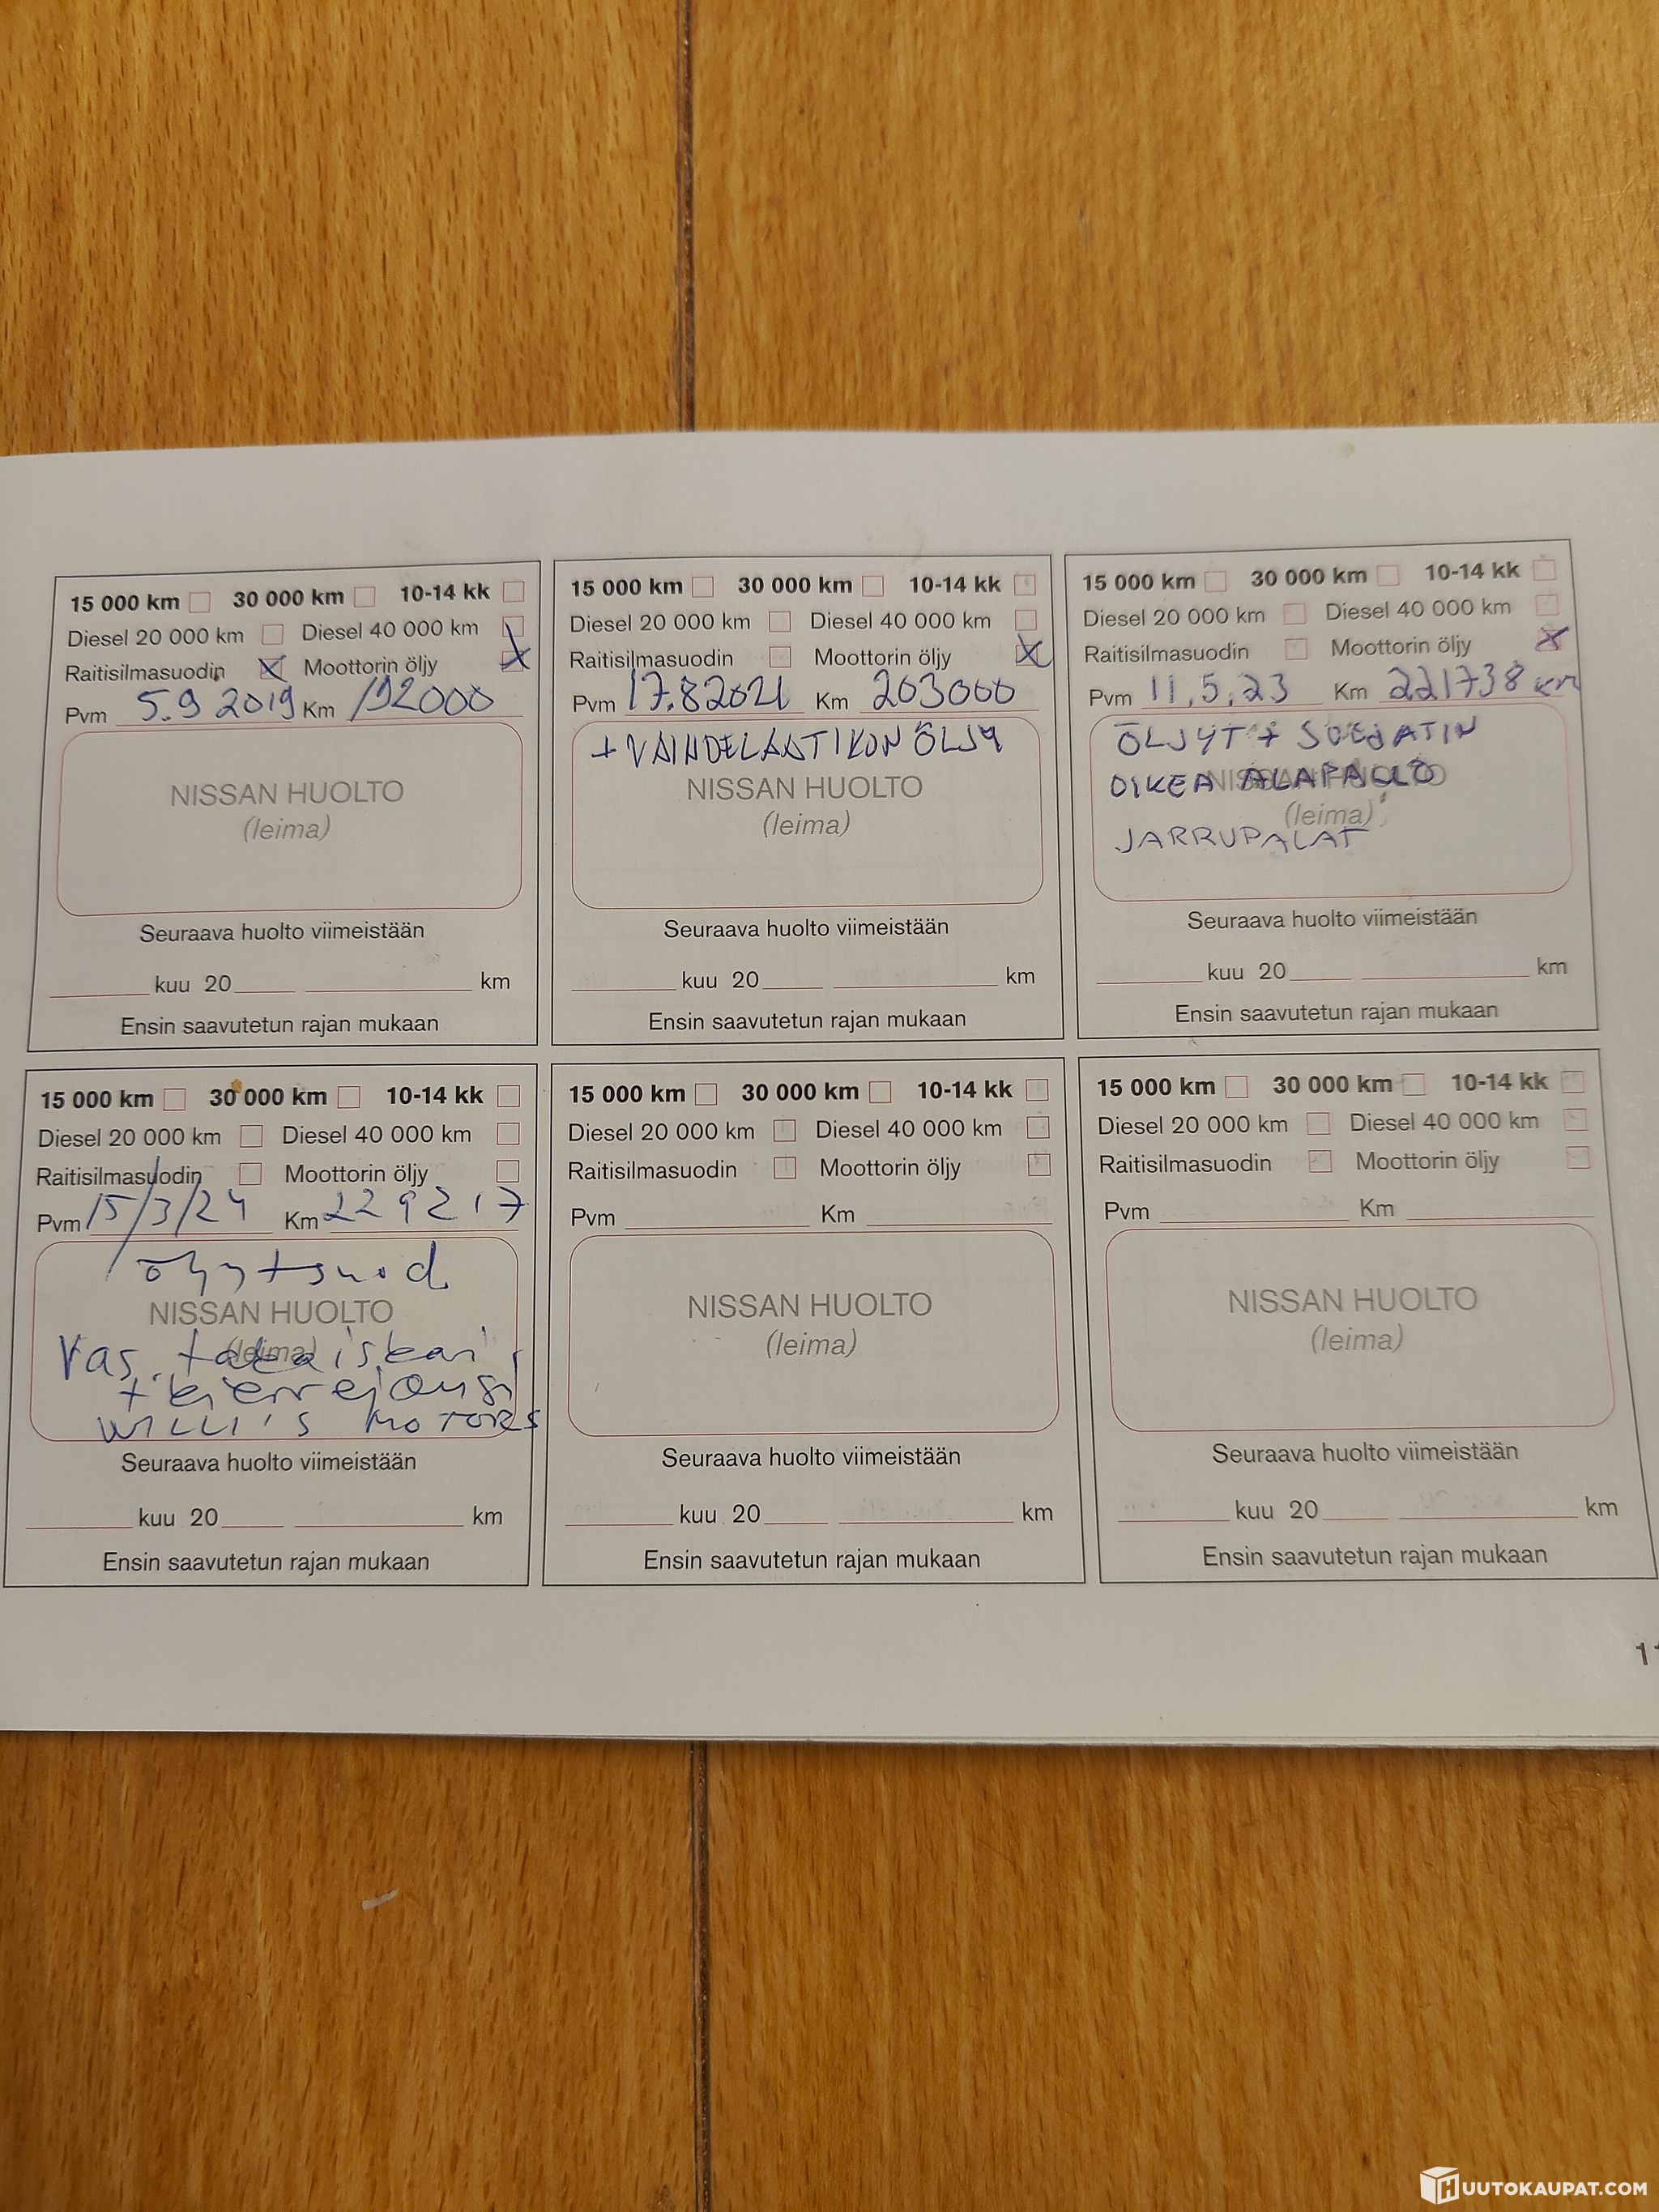 15 000 km 30 000 km 10-14 kk
Diesel 20 000 km Diesel 40 000 km
Raitisilmasuodin X Moottorin öljy X
Pvm 5.9 2019 Km 192000
NISSAN HUOLTO
(leima)
Seuraava huolto viimeistään
kuu 20 km
Ensin saavutetun rajan mukaan
15 000 km 30 000 km 10-14 kk
Diesel 20 000 km Diesel 40 000 km
Raitisilmasuodin Moottorin öljy X
Pvm 17.8 2021 Km 203000
+ VAIHDELAATIKON ÖLJY
NISSAN HUOLTO
(leima)
Seuraava huolto viimeistään
kuu 20 km
Ensin saavutetun rajan mukaan
15 000 km 30 000 km 10-14 kk
Diesel 20 000 km Diesel 40 000 km
Raitisilmasuodin Moottorin öljy X
Pvm 11.5.23 Km 221738 km
ÖLJYT + SUODATIN
OIKEA ALAPALLO
NISSAN HUOLTO
(leima)
JARRUPALAT
Seuraava huolto viimeistään
kuu 20 km
Ensin saavutetun rajan mukaan
15 000 km 30 000 km 10-14 kk
Diesel 20 000 km Diesel 40 000 km
Raitisilmasuodin Moottorin öljy
Pvm 15/3/24 Km 229217
öljyt+suod
NISSAN HUOLTO
(leima)
Vas. takaiskari
+ kierrejousi
WILLI'S MOTORS
Seuraava huolto viimeistään
kuu 20 km
Ensin saavutetun rajan mukaan
15 000 km 30 000 km 10-14 kk
Diesel 20 000 km Diesel 40 000 km
Raitisilmasuodin Moottorin öljy
Pvm Km
NISSAN HUOLTO
(leima)
Seuraava huolto viimeistään
kuu 20 km
Ensin saavutetun rajan mukaan
15 000 km 30 000 km 10-14 kk
Diesel 20 000 km Diesel 40 000 km
Raitisilmasuodin Moottorin öljy
Pvm Km
NISSAN HUOLTO
(leima)
Seuraava huolto viimeistään
kuu 20 km
Ensin saavutetun rajan mukaan
HUUTOKAUPAT.COM